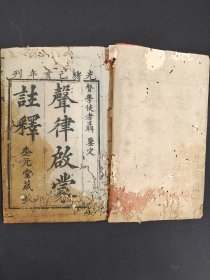 光緒己亥年刊
督學使者韓鑒定
聲律啟蒙
註釋
奎元堂藏板